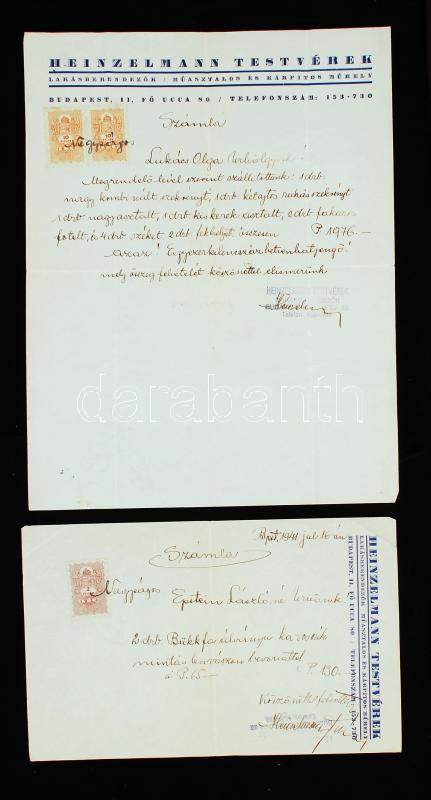 HEINZELMANN TESTVÉREK
LAKÁSBERENDEZŐK / MŰASZTALOS ÉS KÁRPITOS MŰHELY
BUDAPEST, 11, FŐ UCCA 80 / TELEFONSZÁM: 153-730
Számla
Nagyságos
Lukács Olga
Megrendelő levél szerint szállítottunk: 1 drb
nagy kombinált szekrényt, 1 drb kétajtós ruhásszekrényt
1 drb nagy asztalt, 1 drb kis kerek asztalt, 2 drb fakaros
fotelt, és 4 drb széket 2 drb fekhelyet, összesen P 1976.—
azaz! Egyezerkilencszázhetvenhatpengő!
mely összeg felvételét köszönettel elismerünk
HEINZELMANN TESTVÉREK
darabanth
Bpest, 1941 jul 16 án
Számla
Nagyságos Epstein Lászlóné
2 drb. Bükkfa állványu karosszék
mintás lenvászon bevonattal
á P. 65— P. 130.—
Köszönettel felvettem
HEINZELMANN TESTVÉREK
LAKÁSBERENDEZŐK MŰASZTALOS ÉS KÁRPITOS MŰHELY
BUDAPEST, 11, FŐ UCCA 80 / TELEFONSZÁM: 153-730